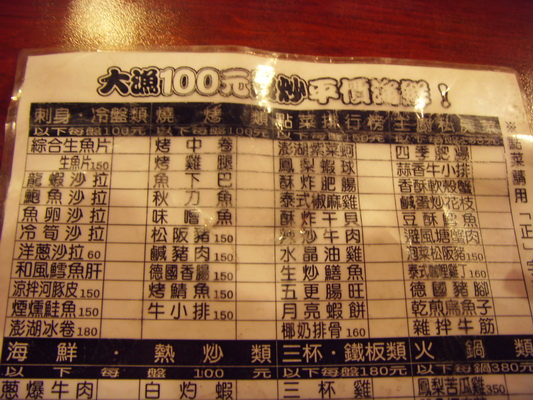 大漁100元 炒平價海鮮！
刺身．冷盤類 燒烤類 點菜排行榜 主廚私房菜
以下每盤100元 以下每盤100元
綜合生魚片 烤中卷 澎湖紫菜蚵 四季肥腸
生魚片150 烤雞腿 鳳梨蝦球 蒜香牛小排
龍蝦沙拉 魚下巴 酥炸肥腸 香酥軟殼蟹
鮑魚沙拉 秋刀魚 泰式椒麻雞 鹹蛋炒花枝
魚卵沙拉 味噌魚 酥炸干貝 豆酥鱈魚
冷筍沙拉 松阪豬150 炒沙牛肉 避風塘蟹肉
洋蔥沙拉60 鹹豬肉150 水晶油條 泡菜松阪豬150
和風鱈魚肝 德國香腸150 生炒鱔魚 泰式咖哩雞丁160
涼拌河豚皮150 烤鯖魚150 五更腸旺 德國豬腳
煙燻鮭魚150 牛小排150 月亮蝦餅 乾煎扁魚子
澎湖冰卷180 椰奶排骨160 雜拌牛筋
※點菜請用「正」字
海鮮．熱炒類 三杯．鐵板類 火鍋類
以下每盤100元 以下每盤180元 以下每鍋380元
蔥爆牛肉 白灼蝦 三杯雞 鳳梨苦瓜雞350